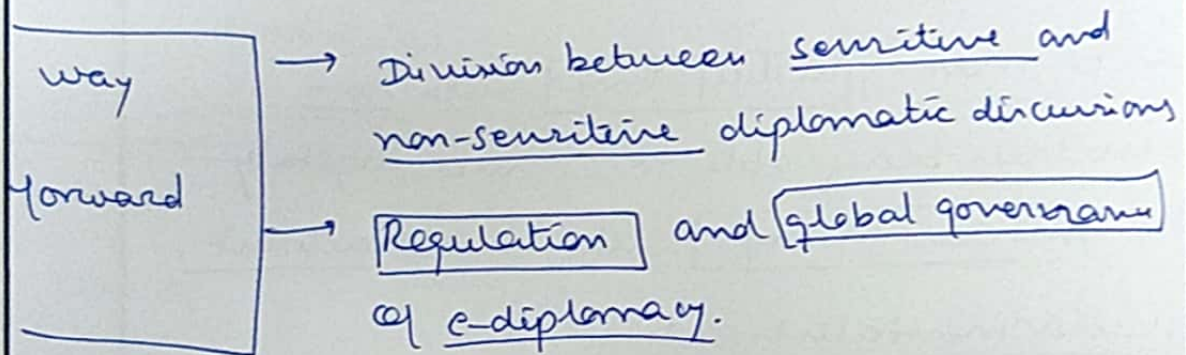 way
forward
→ Division between sensitive and
non-sensitive diplomatic discussions
→ Regulation and global governance
of e-diplomacy.